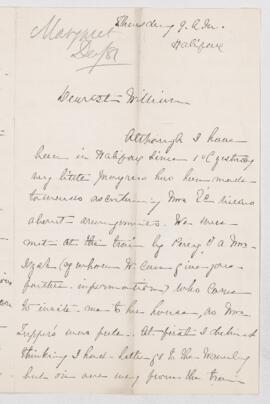 Thursday 9. A.M.
Halifax
Margaret
Dec/81
Dearest William
Although I have
been in Halifax since 10 yesterday
very little progress has been made
towards ascertaining Mrs
about arrangements. We were
met at the train by Percy & a Mr.
(of whom W. can give you
further information) who came
to invite me to his house, as Mrs
Tupper's was full. At first I declined
thinking I had better go to the Waverley
but on our way from the train